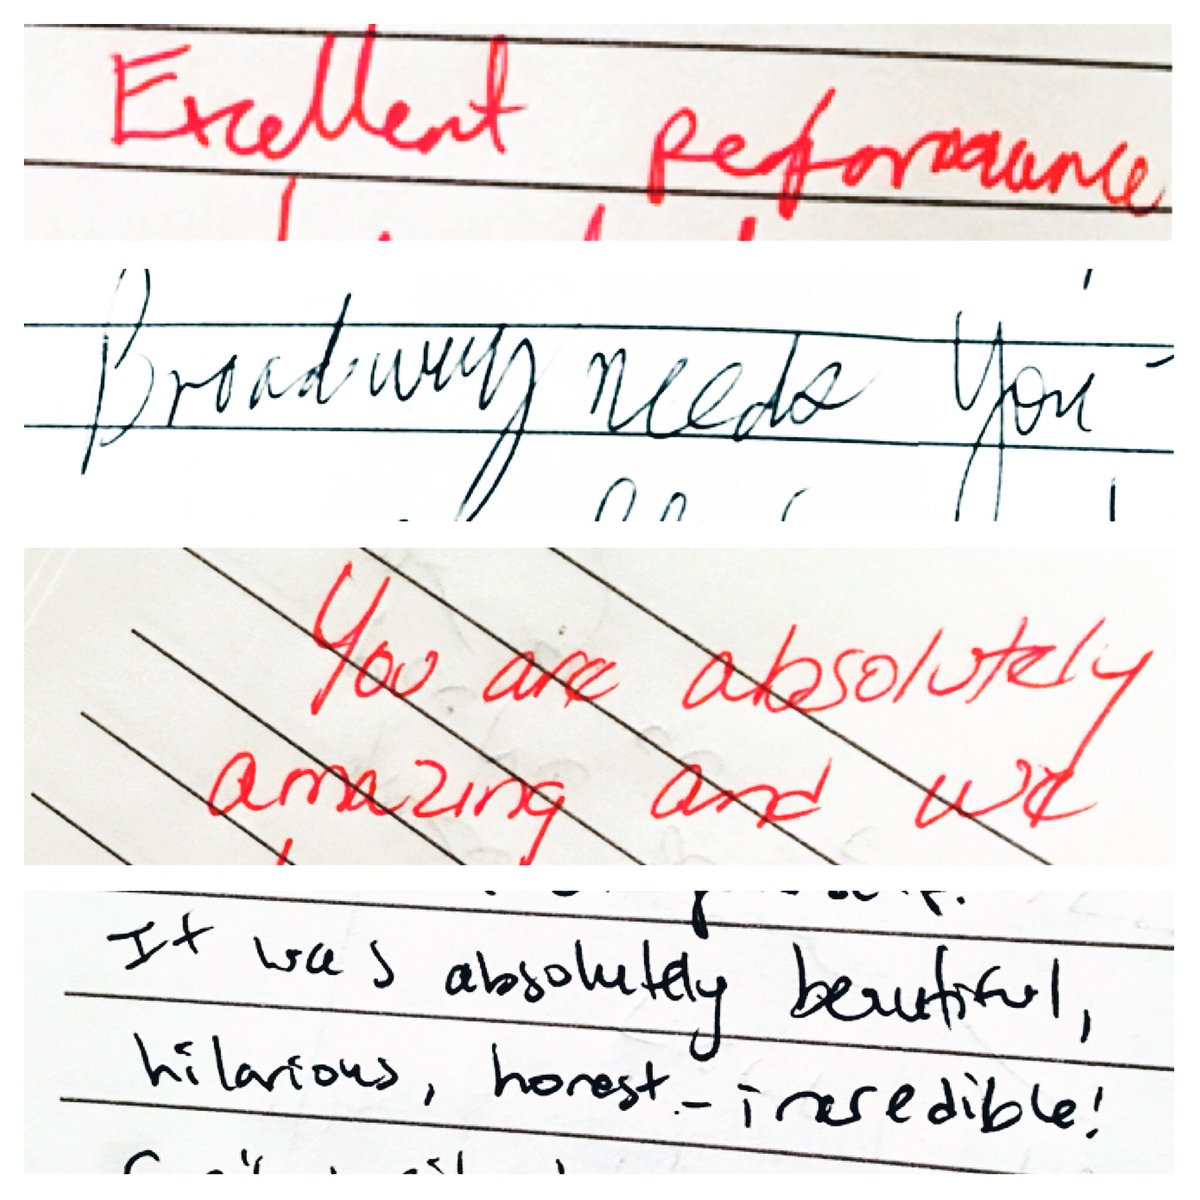 Excellent performance
Broadway needs you
You are absolutely
amazing and we
It was absolutely beautiful,
hilarious, honest - incredible!